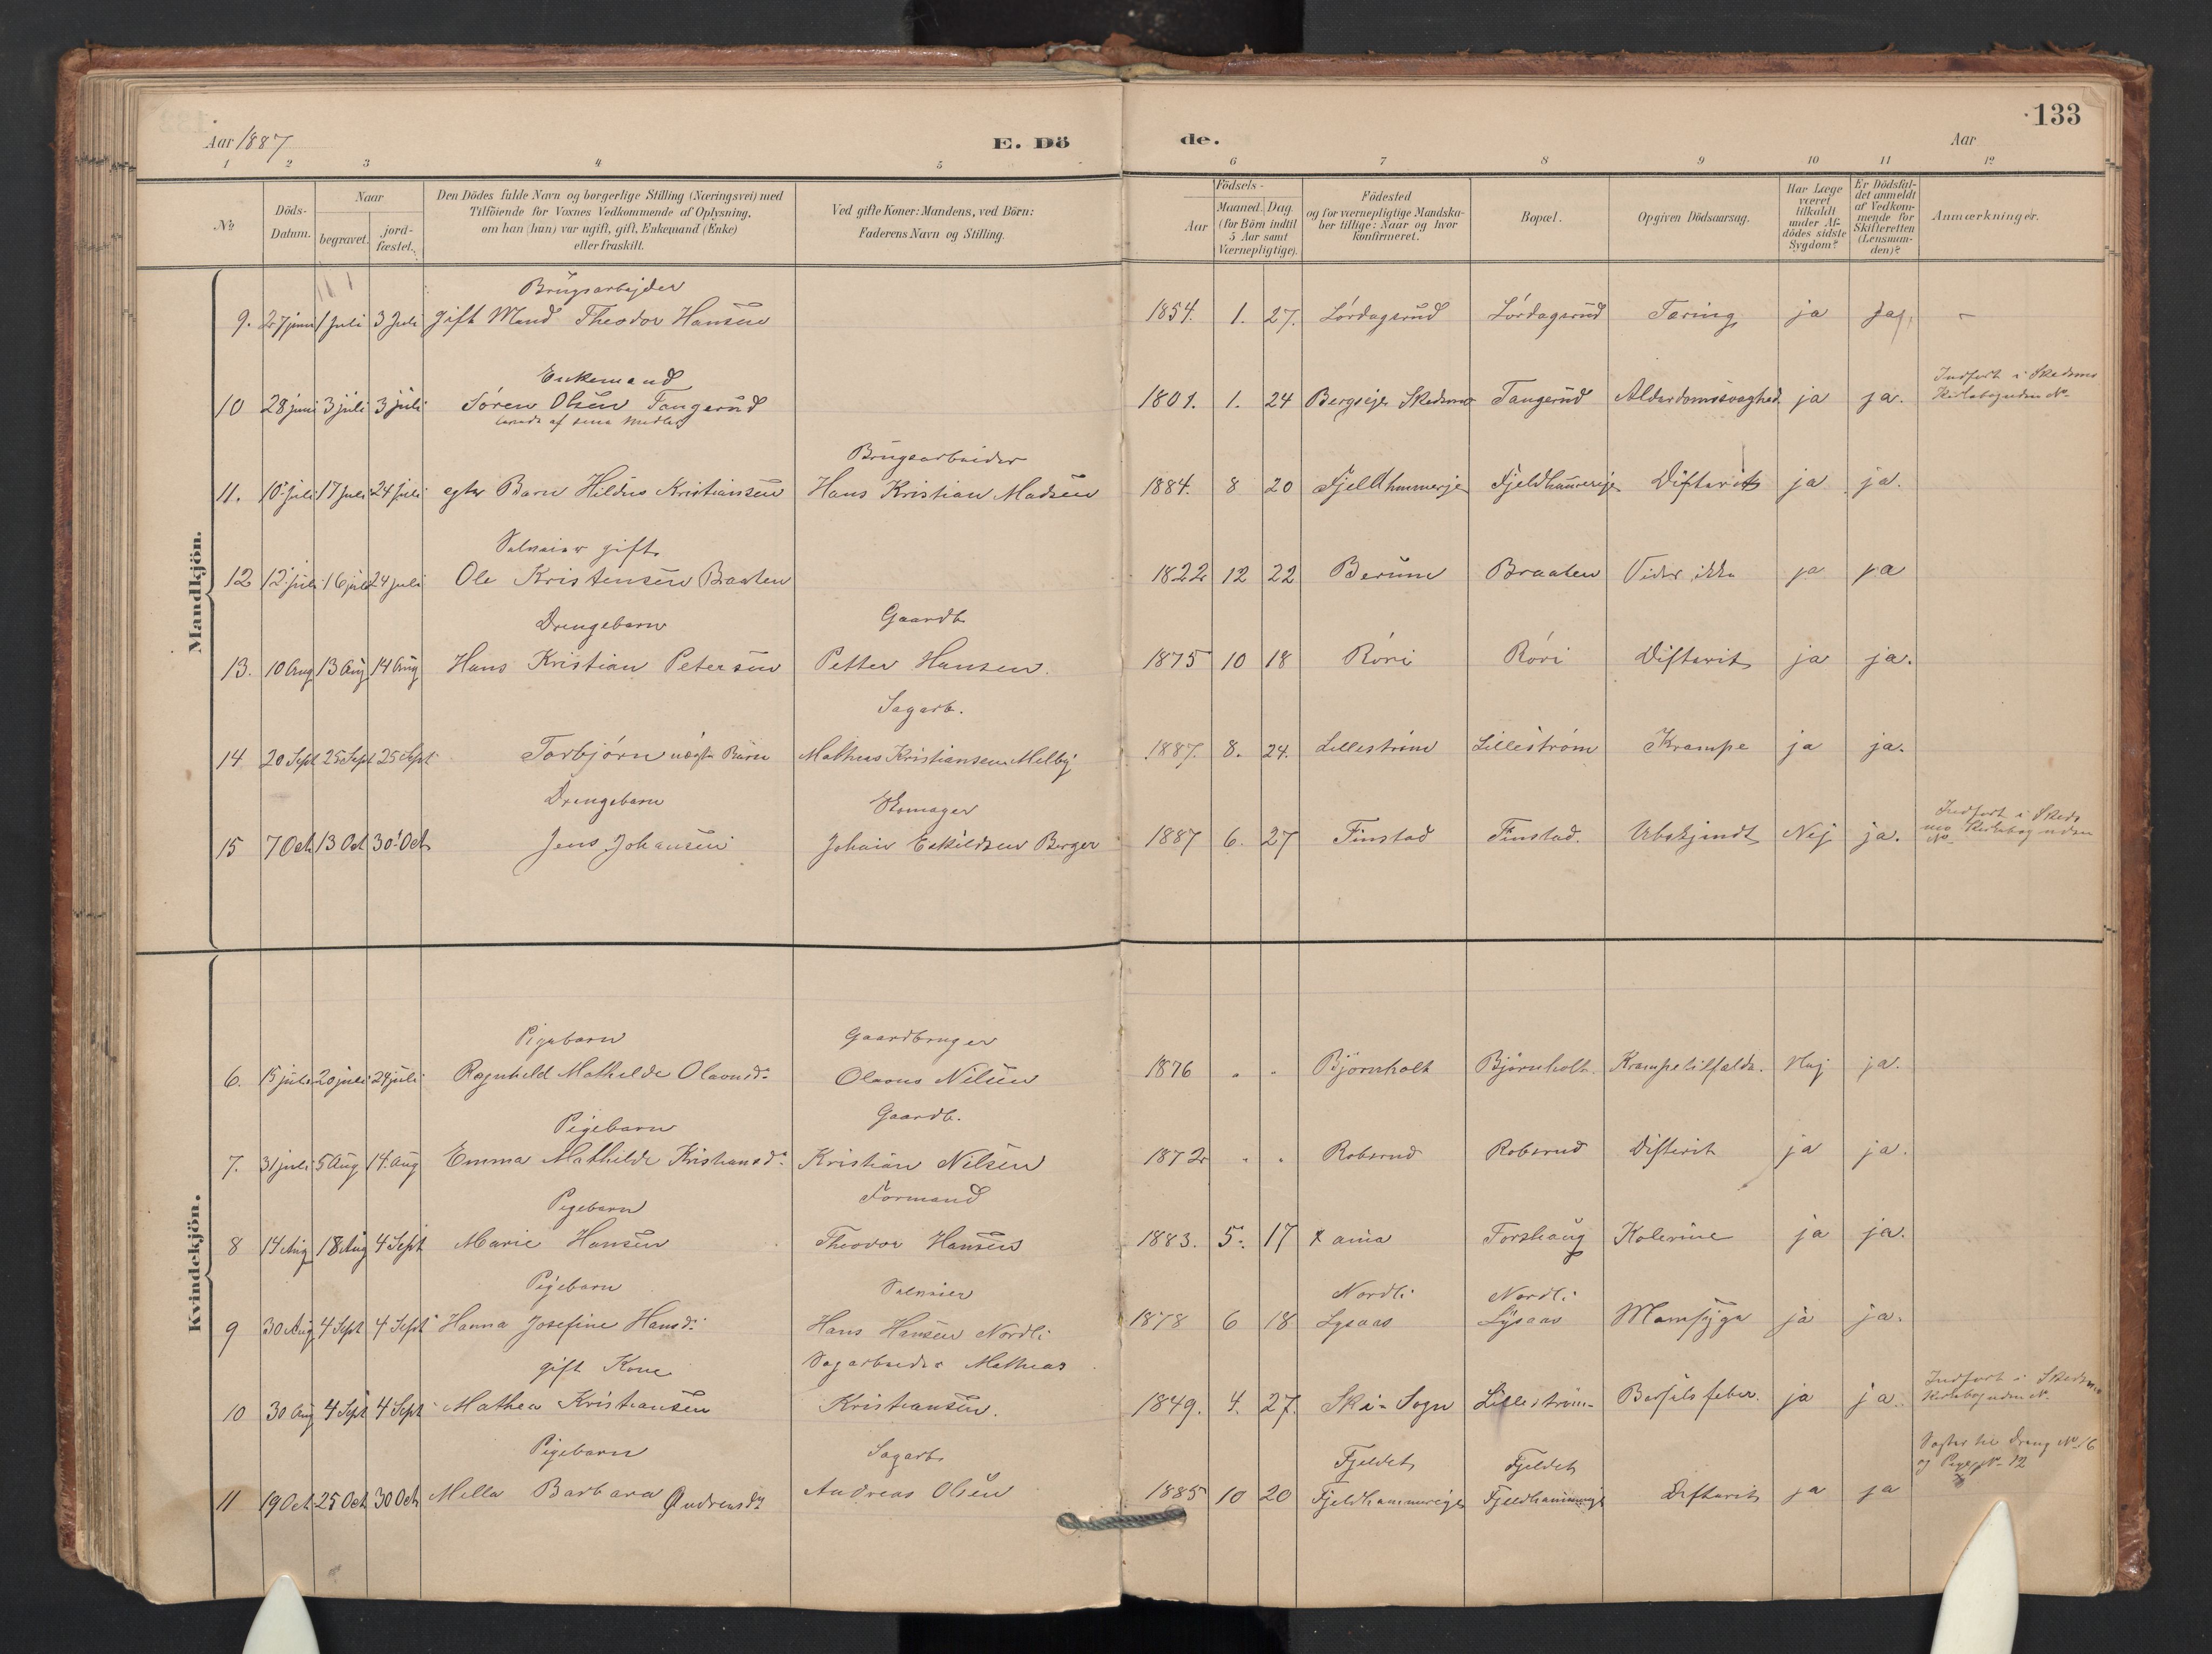 133
Aar 1887
E. Dö
de.
Aar
1 2 3 4 5 6 7 8 9 10 11 12
No
Döds-
Datum.
Naar
begravet.
jord-
fæstet.
Den Dödes fulde Navn og borgerlige Stilling (Næringsvei) med
Tilföiende for Voxnes Vedkommende af Oplysning,
om han (hun) var ugift, gift, Enkemand (Enke)
eller fraskilt.
Ved gifte Koner: Mandens, ved Börn:
Faderens Navn og Stilling.
Födsels-
Aar
Maaned. Dag.
(for Börn indtil
5 Aar samt
Værnepligtige).
Födested
og for værnepligtige Mandska-
ber tillige: Naar og hvor
konfirmeret.
Bopæl.
Opgiven Dödsaarsag.
Har Læge
været
tilkaldt
under Af-
dödes sidste
Sygdom?
Er Dödsfal-
det anmeldt
af Vedkom-
mende for
Skifteretten
(Lensman-
den)?
Anmærkninger.
Mandkjön.
Brugsarbejder
9. 27 juni 1 Juli 3 Juli gift Mand Theodor Hansen 1854. 1. 27. Lördagsrud Lördagsrud Tæring ja Ja. –
Enkemand
10 28 juni 3 juli 3 juli Sören Olsen Tangerud 1801. 1. 24 Bergseje Skedsmo Tangerud Alderdomssvaghed ja ja.
levede af sine Midler
Indfört i Skedsmo
Kirkebog uden No
Brugsarbeider
11. 10 juli 17 juli 24 juli egte Barn Hildus Kristiansen Hans Kristian Madsen 1884. 8 20 Fjeldhammereje Fjeldhammereje Difterit ja ja.
Selveier gift
12 12 juli 16 juli 24 juli Ole Kristensen Braaten 1822 12 22 Berum Braaten Vides ikke ja ja
Drengebarn Gaardb.
13. 10 Aug 13 Aug 14 Aug Hans Kristian Petersen Petter Hansen. 1875 10 18 Röri Röri Difterit ja ja.
Sagarb.
14 20 Sept 25 Sept 25 Sept Torbjörn uægte Barn Mathias Kristiansen Melby 1887. 8. 24. Lilleström Lilleström Krampe ja ja.
Drengebarn Skomager
15 7 Oct 13 Oct 30 Oct Jens Johansen Johan Eskildsen Berger 1887 6. 27 Finstad Finstad. Ubekjendt Nej ja.
Indfört i Skeds
mo Kirkebog uden
No
Kvindekjön.
Pigebarn Gaardbruger
6. 15 juli 20 juli 24 juli Ragnhild Mathilde Olavusd. Olavus Nilsen 1876 " " Björnholt Björnholt. Krampetilfælde. Nej ja.
Pigebarn Gaardb.
7. 31 juli 5 Aug 14. Aug Emma Mathilde Kristiansd. Kristian Nilsen 1872 " " Robsrud Robsrud Difterit ja ja.
Pigebarn Formand
8 14 Aug 18 Aug 4 Sept Marie Hansen Theodor Hansen 1883. 5. 17 Forshaug Kolerine ja ja.
Pigebarn Selveier Nordli Nordli
9 30 Aug 4 Sept 4 Sept Hanna Josefine Hansd. Hans Hansen Nordli 1878 6 18 Lysaas Lysaas ja ja.
gift Kone Sagarbeider Mathias
10 30 Aug 4 Sept 4 Sept Mathea Kristiansen Kristiansen. 1849. 4. 27. Ski-Sogn Lilleström Barselsfeber. ja ja.
Indfört i Skedsmo
Kirkebog uden N.
Pigebarn Sagarb. Fjeldet Fjeldet
11 19 Oct 25 Oct 30 Oct Mella Barbara Andreasdr. Andreas Olsen 1885 10 20 Fjeldhammereje Fjeldhammereje Difterit ja ja
Söster til Dreng No 16
og Pige No 12